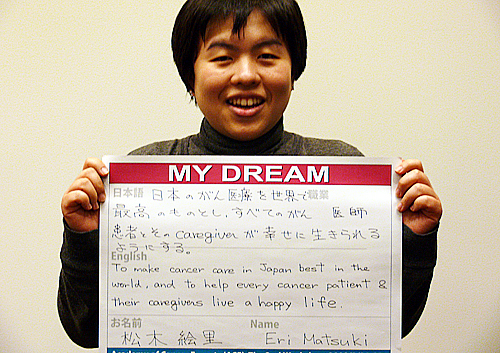 MY DREAM
日本語 日本のがん医療を世界で 職業
最高のものとし、すべてのがん 医師
患者とそのcaregiverが幸せに生きられる
ようにする。
English
To make cancer care in Japan best in the
world, and to help every cancer patient &
their caregivers live a happy life.
お名前 Name
松木 絵里 Eri Matsuki